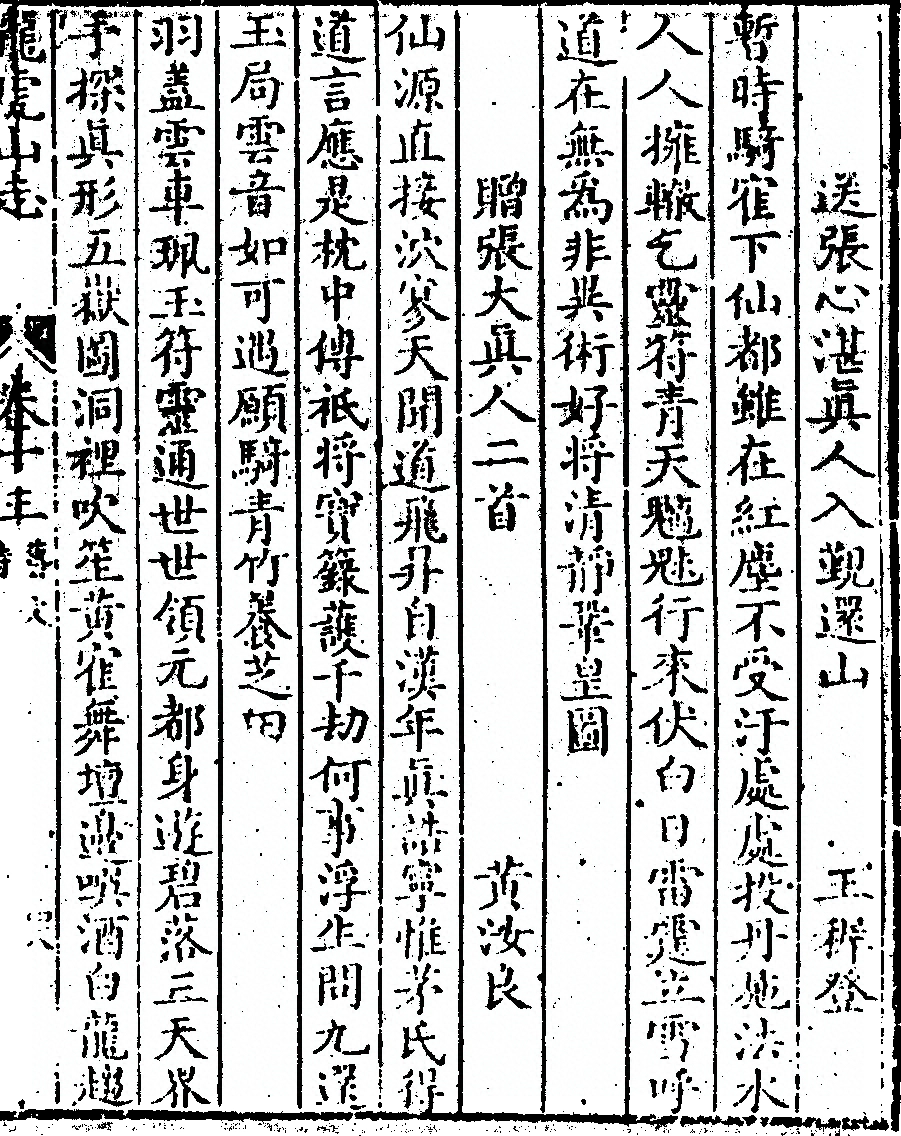 送張心湛眞人入覲還山　王穉登
暫時騎寉下仙都雖在紅塵不受汙處處投丹施法水
人人擁轍乞靈符青天魑魅行來伏白日雷霆立雪呼
道在無爲非異術好將清靜鞏皇圖
贈張大眞人二首　黃汝良
仙源直接泬寥天聞道飛昇自漢年眞誥寧惟茅氏得
道言應是枕中傳祇將寶籙護千劫何事浮生問九還
玉局雲音如可遡願騎青竹養芝田
羽蓋雲車珮玉符靈通世世領元都身遊碧落三天界
手探眞形五嶽圖洞裡吹笙黃寉舞壇邊噀酒白龍趨
龍虎山志　卷十三　藝文　詩